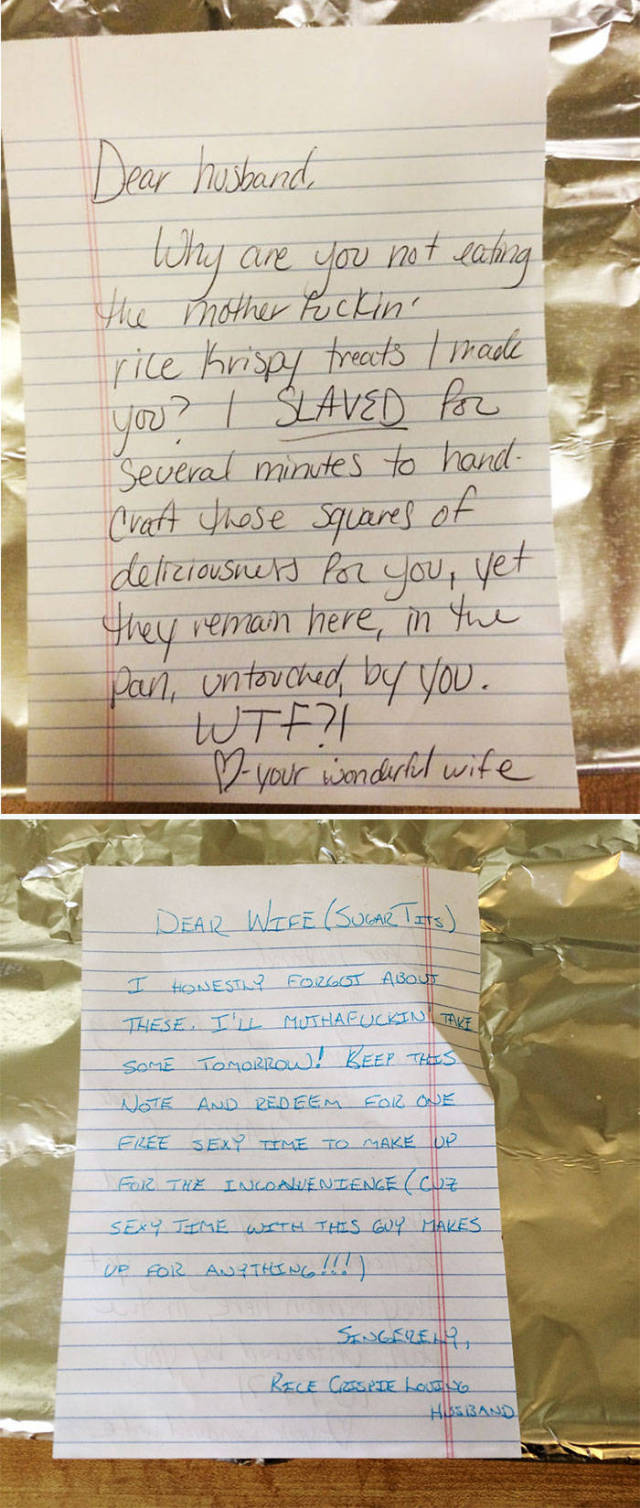 Dear husband,
Why are you not eating
the mother fuckin'
rice krispy treats I made
you? I SLAVED for
several minutes to hand-
craft those squares of
deliciousness for you, yet
they remain here, in the
pan, untouched, by you.
WTF?!
♡-your wonderful wife
DEAR WIFE (SUGAR TITS)
I HONESTLY FORGOT ABOUT
THESE. I'LL MUTHAFUCKIN' TAKE
SOME TOMORROW! KEEP THIS
NOTE AND REDEEM FOR ONE
FREE SEXY TIME TO MAKE UP
FOR THE INCONVENIENCE (CUZ
SEXY TIME WITH THIS GUY MAKES
UP FOR ANYTHING!!!)
SINCERELY,
RICE CRISPIE LOVING
HUSBAND